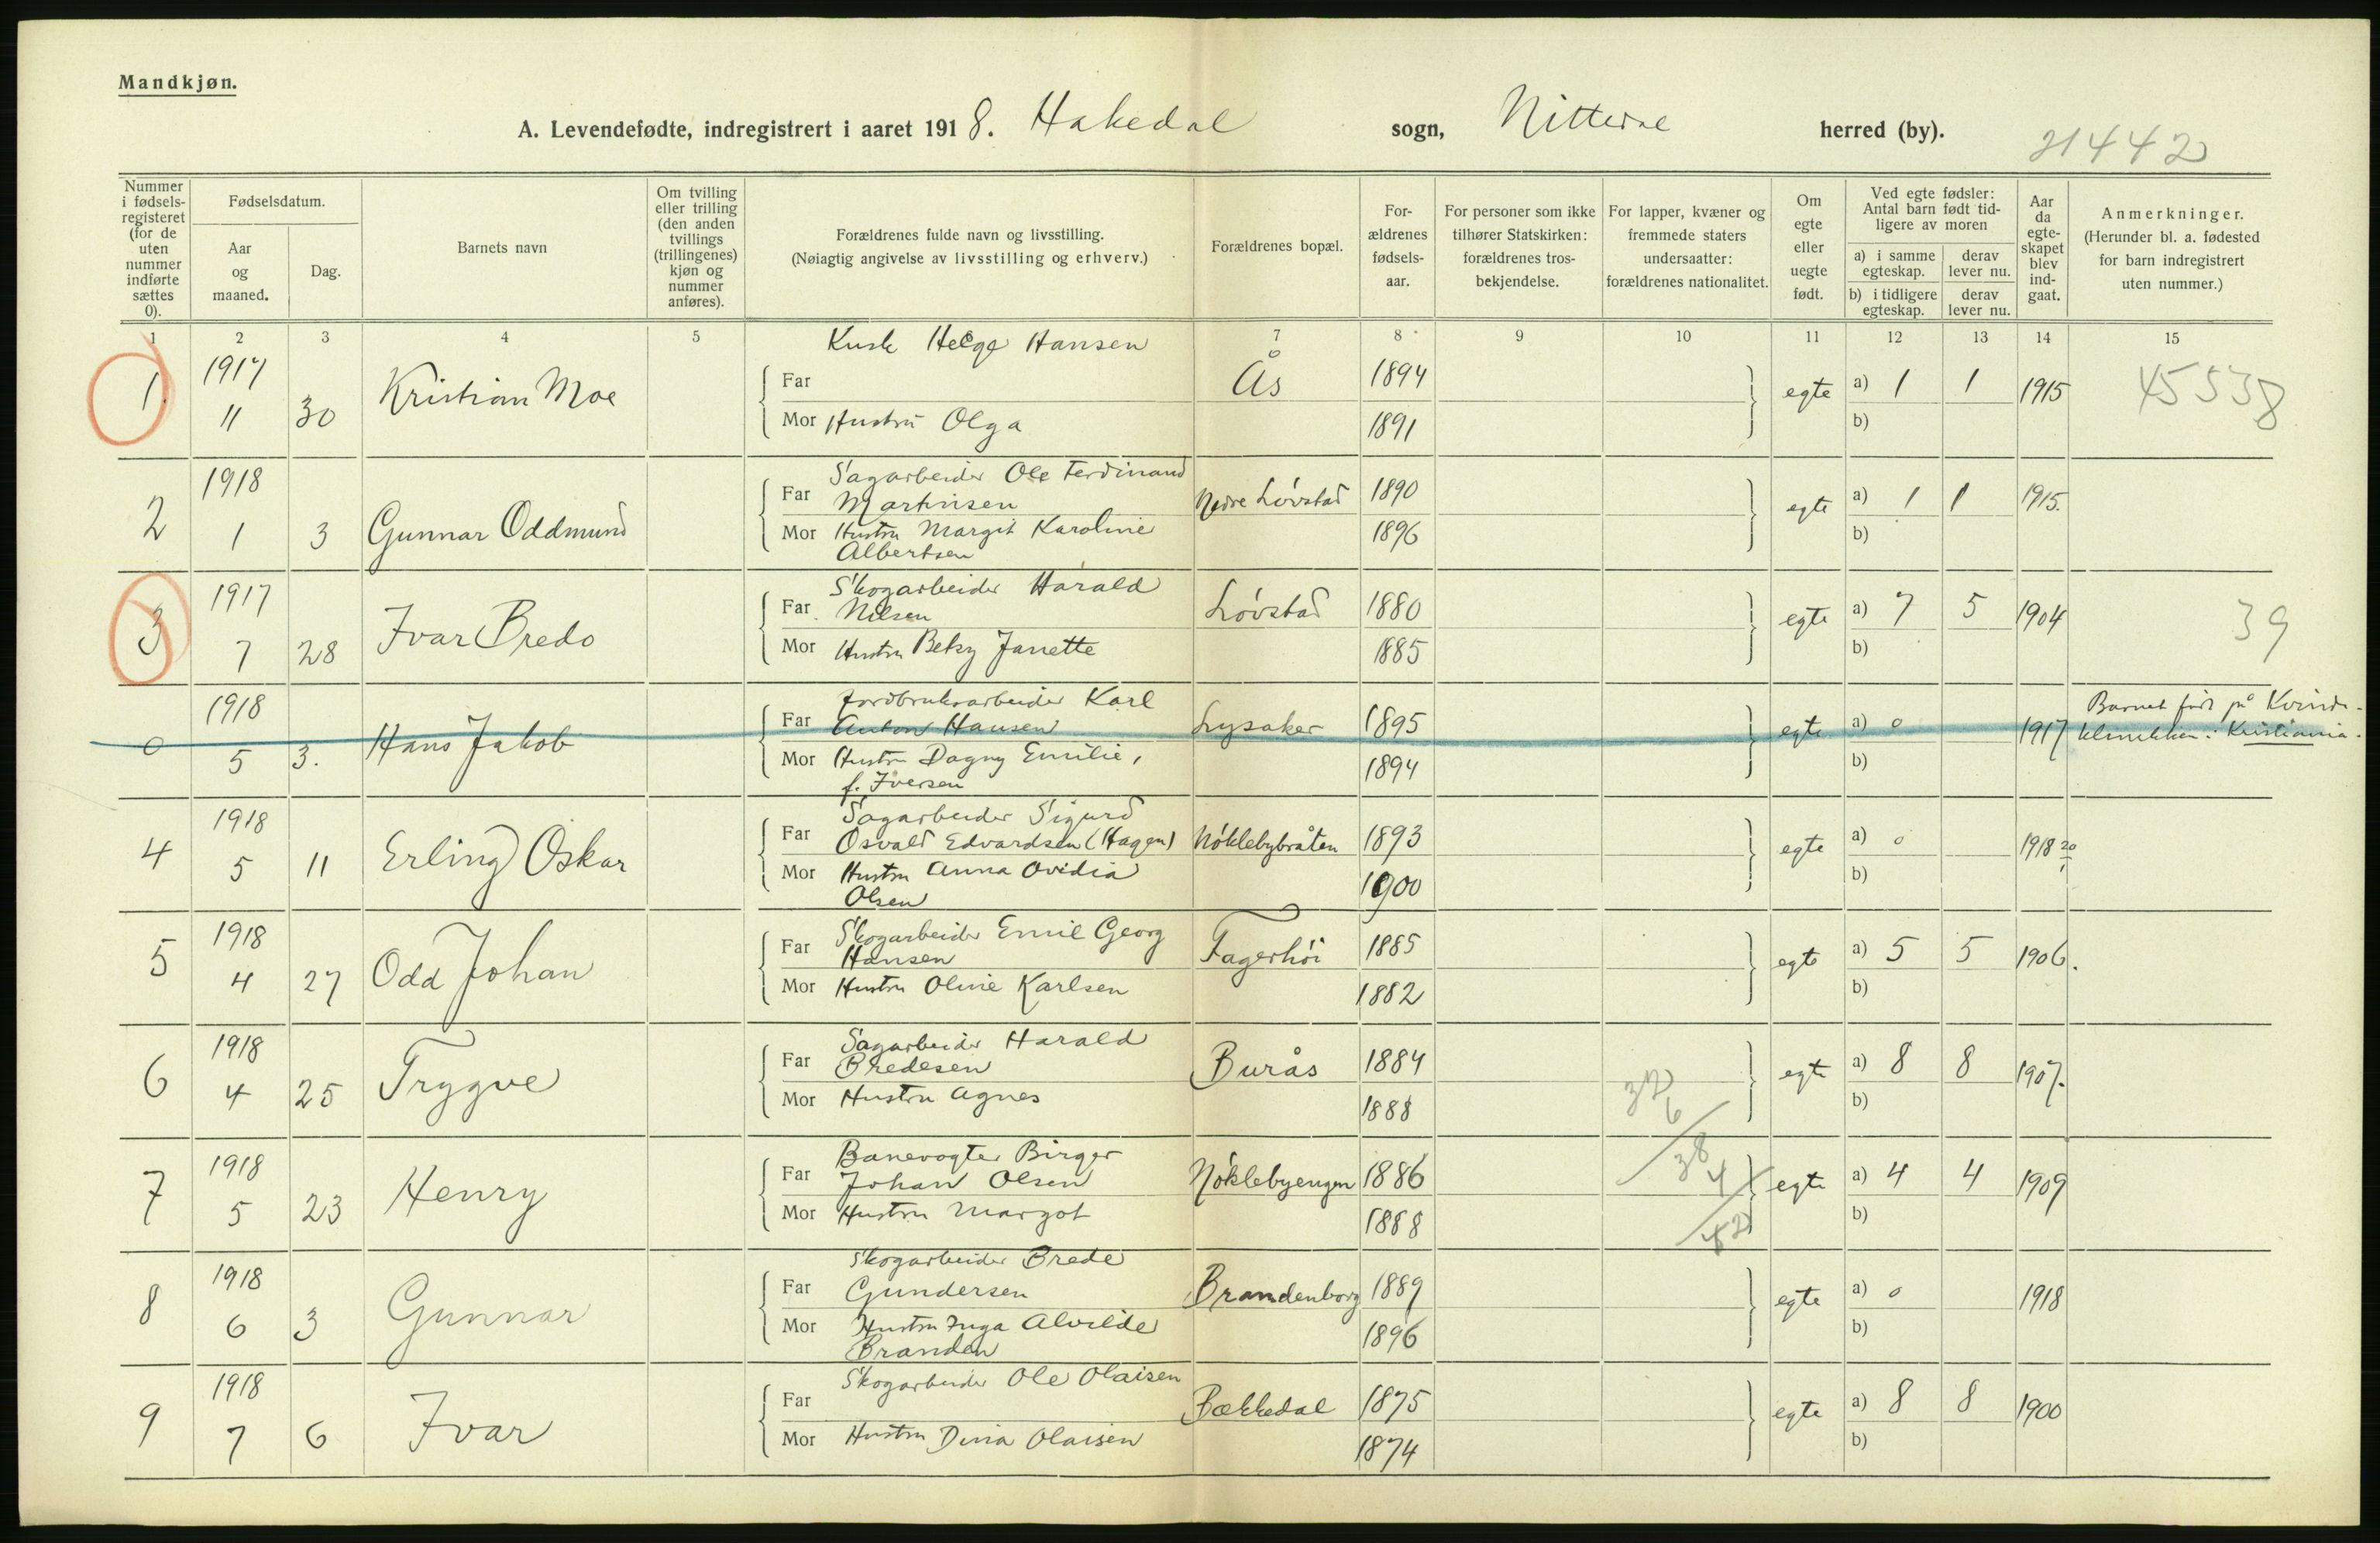 Mandkjøn.
A. Levendefødte, indregistrert i aaret 1918. Hakedal sogn, Nittedal herred (by).
21442
Nummer i fødsels-registeret (for de uten nummer indførte sættes 0).
Fødselsdatum.
Aar og maaned.
Dag.
Barnets navn
Om tvilling eller trilling (den anden tvillings (trillingenes) kjøn og nummer anføres).
Forældrenes fulde navn og livsstilling.
(Nøiagtig angivelse av livsstilling og erhverv.)
Forældrenes bopæl.
For-ældrenes fødsels-aar.
For personer som ikke tilhører Statskirken: forældrenes tros-bekjendelse.
For lapper, kvæner og fremmede staters undersaatter: forældrenes nationalitet.
Om egte eller uegte født.
Ved egte fødsler: Antal barn født tid-ligere av moren
a) i samme egteskap.
derav lever nu.
b) i tidligere egteskap.
derav lever nu.
Aar da egte-skapet blev ind-gaat.
Anmerkninger.
(Herunder bl. a. fødested for barn indregistrert uten nummer.)
1 2 3 4 5 7 8 9 10 11 12 13 14 15
1. 1917 11 30 Kristian Moe
Kusk Helge Hansen
Far
Mor Hustru Olga
Ås 1894 1891 egte a) 1 1 b) 1915 45538
2 1918 1 3 Gunnar Oddmund
Far Sagarbeider Ole Ferdinand
Martinsen
Mor Hustru Margit Karoline
Albertsen
Nedre Lövstad 1890 1896 egte a) 1 1 b) 1915.
3 1917 7 28 Ivar Bredo
Far Skogarbeider Harald
Nilsen
Mor Hustru Betsy Janette
Lövstad 1880 1885 egte a) 7 5 b) 1904 39
0 1918 5 3. Hans Jakob
Far Jordbruksarbeider Karl
Anton Hansen
Mor Hustru Dagny Emilie,
f. Iversen
Lysaker 1895 1894 egte a) 0 b) 1917
Barnet født på Kvinde-
klinikken i Kristiania.
4 1918 5 11 Erling Oskar
Far Sagarbeider Sigurd
Osvald Edvardsen (Hagen)
Mor Hustru Anna Ovidia
Olsen
Nöklebybråten 1893 1900 egte a) 0 b) 1918 20/1
5 1918 4 27 Odd Johan
Far Skogarbeider Emil Georg
Hansen
Mor Hustru Oline Karlsen
Fagerhöi 1885 1882 egte a) 5 5 b) 1906.
6 1918 4 25 Trygve
Far Sagarbeider Harald
Bredesen
Mor Hustru Agnes
Burås 1884 1888 egte a) 8 8 b) 1907.
32
6
38
4
42
7 1918 5 23 Henry
Far Banevogter Birger
Johan Olsen
Mor Hustru Margot
Nöklebyengen 1886 1888 egte a) 4 4 b) 1909
8 1918 6 3 Gunnar
Far Skogarbeider Brede
Gundersen
Mor Hustru Inga Alvilde
Branden
Brandenborg 1889 1896 egte a) 0 b) 1918
9 1918 7 6 Ivar
Far Skogarbeider Ole Olaisen
Mor Hustru Dina Olaisen
Bækkedal 1875 1874 egte a) 8 8 b) 1900